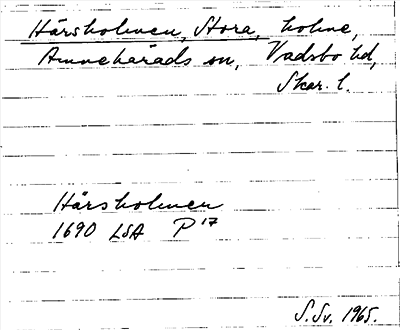 Hårsholmen, Stora, holme,
Amnehärads sn, Vadsbo hd,
Skar. l.
Hårsholmen
1690 LSA P 17
S. Sv. 1965.